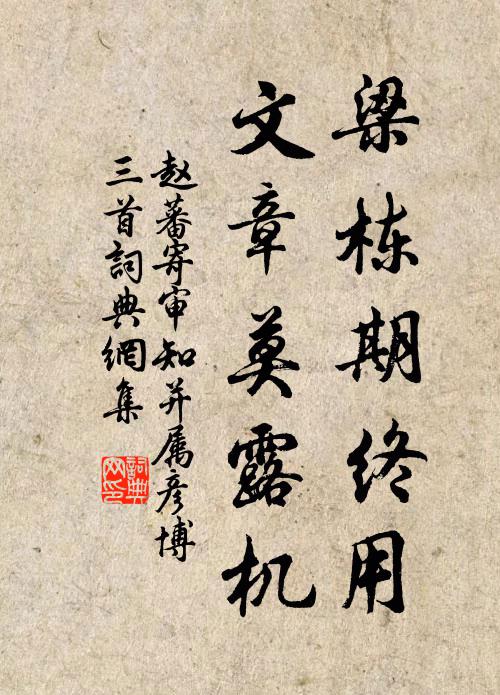 梁栋期终用
文章莫露机
赵蕃寄审知并属彦博
三首詞典網集
詞典网印